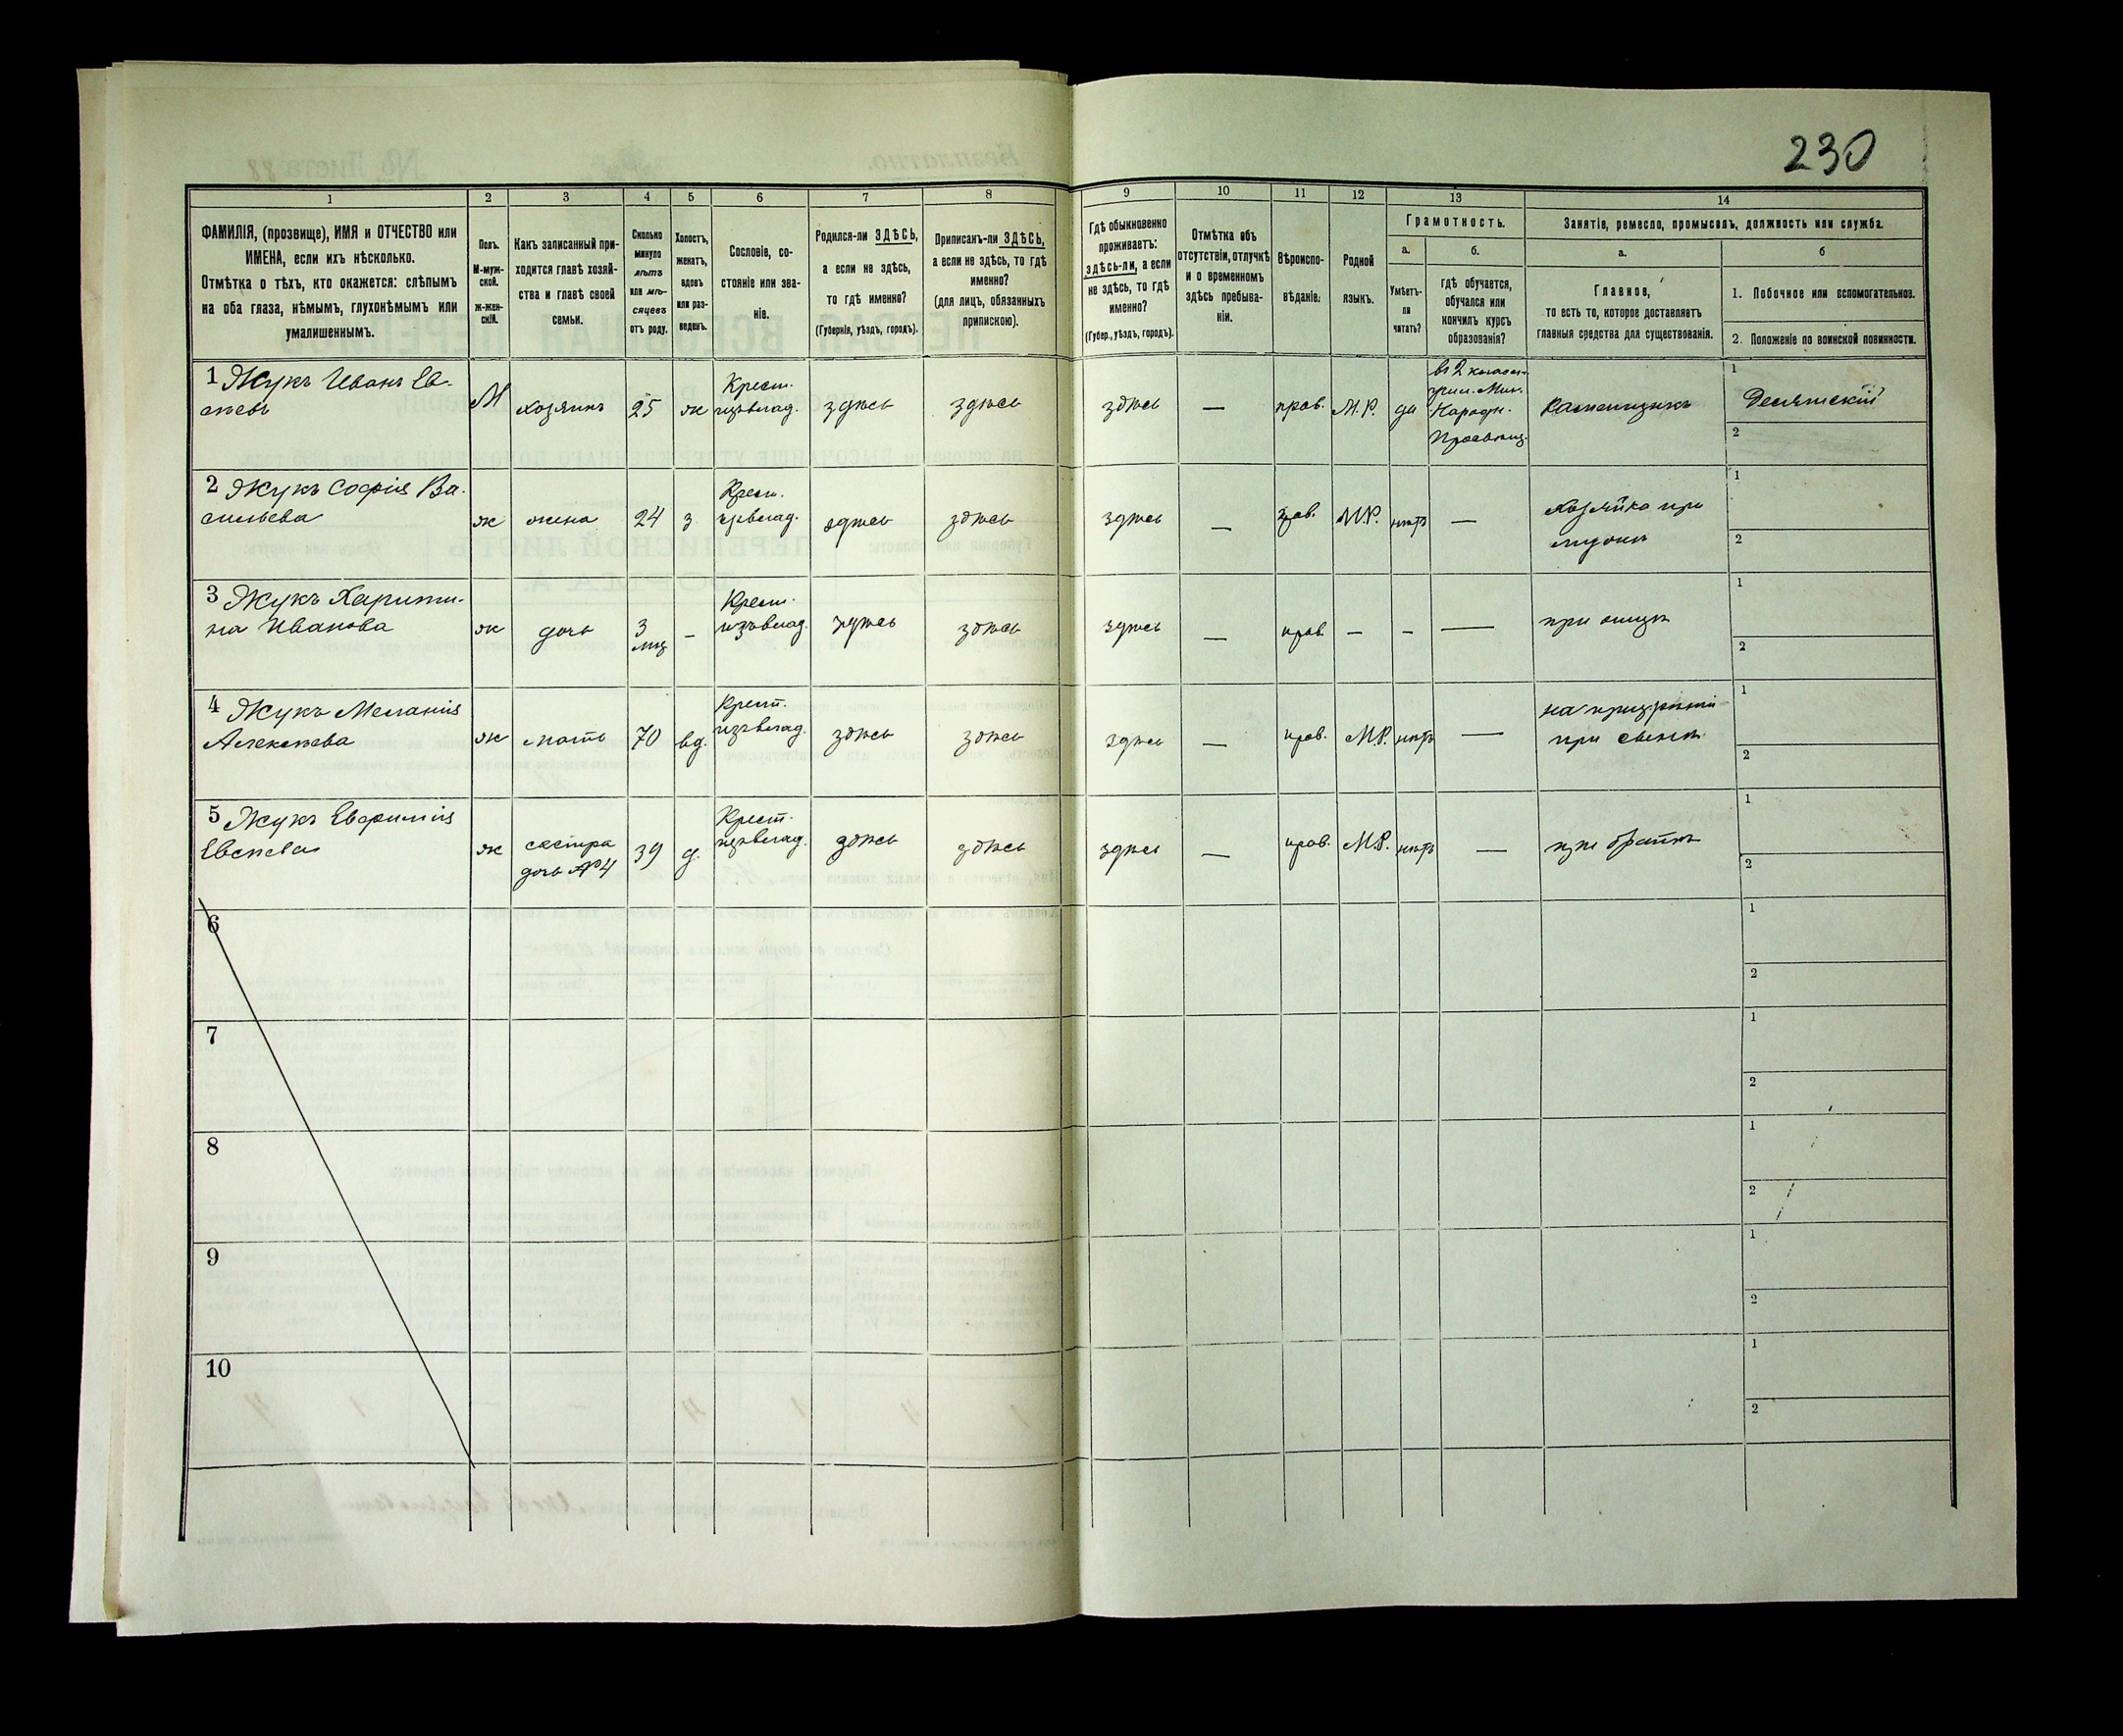 230
1 2 3 4 5 6 7 8 9 10 11 12 13 14
ФАМИЛІЯ, (прозвище), ИМЯ и ОТЧЕСТВО или
ИМЕНА, если ихъ нѣсколько.
Отмѣтка о тѣхъ, кто окажется: слѣпымъ
на оба глаза, нѣмымъ, глухонѣмымъ или
умалишеннымъ.
Полъ.
М-муж-
ской.
ж-жен-
скій.
Какъ записанный при-
ходится главѣ хозяй-
ства и главѣ своей
семьи.
Сколько
минуло
лѣтъ
или мѣ-
сяцевъ
отъ роду.
Холостъ,
женатъ,
вдовъ
или раз-
веденъ.
Сословіе, со-
стояніе или зва-
ніе.
Родился-ли ЗДѢСЬ,
а если не здѣсь,
то гдѣ именно?
(Губернія, уѣздъ, городъ).
Приписанъ-ли ЗДѢСЬ,
а если не здѣсь, то гдѣ
именно?
(для лицъ, обязанныхъ
припискою).
Гдѣ обыкновенно
проживаетъ:
здѣсь-ли, а если
не здѣсь, то гдѣ
именно?
(Губер., уѣздъ, городъ).
Отмѣтка объ
отсутствіи, отлучкѣ
и о временномъ
здѣсь пребыва-
ніи.
Вѣроиспо-
вѣданіе.
Родной
языкъ.
Грамотность.
а.
Умѣетъ-
ли
читать?
б.
гдѣ обучается,
обучался или
кончилъ курсъ
образованія?
Занятіе, ремесло, промыселъ, должность или служба.
а.
Главное,
то есть то, которое доставляетъ
главныя средства для существованія.
б
1. Побочное или вспомогательное.
2. Положеніе по воинской повинности.
1 Жукъ Иванъ Ев-
сѣевъ
М
хозяинъ
25
ж
Крест.
изъ влад.
здѣсь
здѣсь
здѣсь
—
прав.
М.Р.
да
въ 2 классн.
учил. Мин.
Народн.
Просвѣщ.
Каменщикъ
1
Десятскій
2
2 Жукъ Софія Ва-
сильева
ж
жена
24
з.
Крест.
изъ влад.
здѣсь
здѣсь
здѣсь
—
прав.
М.Р.
нѣтъ
—
Хозяйка при
мужѣ
1
2
3 Жукъ Харити-
на Иванова
ж
дочь
3
мѣс
–
Крест.
изъ влад.
здѣсь
здѣсь
здѣсь
—
прав.
–
–
—
при отцѣ
1
2
4 Жукъ Меланія
Алексѣева
ж
мать
70
вд.
Крест.
изъ влад.
здѣсь
здѣсь
здѣсь
—
прав.
М.Р.
нѣтъ
—
на призрѣніи
при сынѣ
1
2
5 Жукъ Евфимія
Евсѣева
ж
сестра
дочь №4
39
д.
Крест.
изъ влад.
здѣсь
здѣсь
здѣсь
—
прав.
М.Р.
нѣтъ
—
при братѣ
1
2
6
1
2
7
1
2
8
1
2
9
1
2
10
1
2